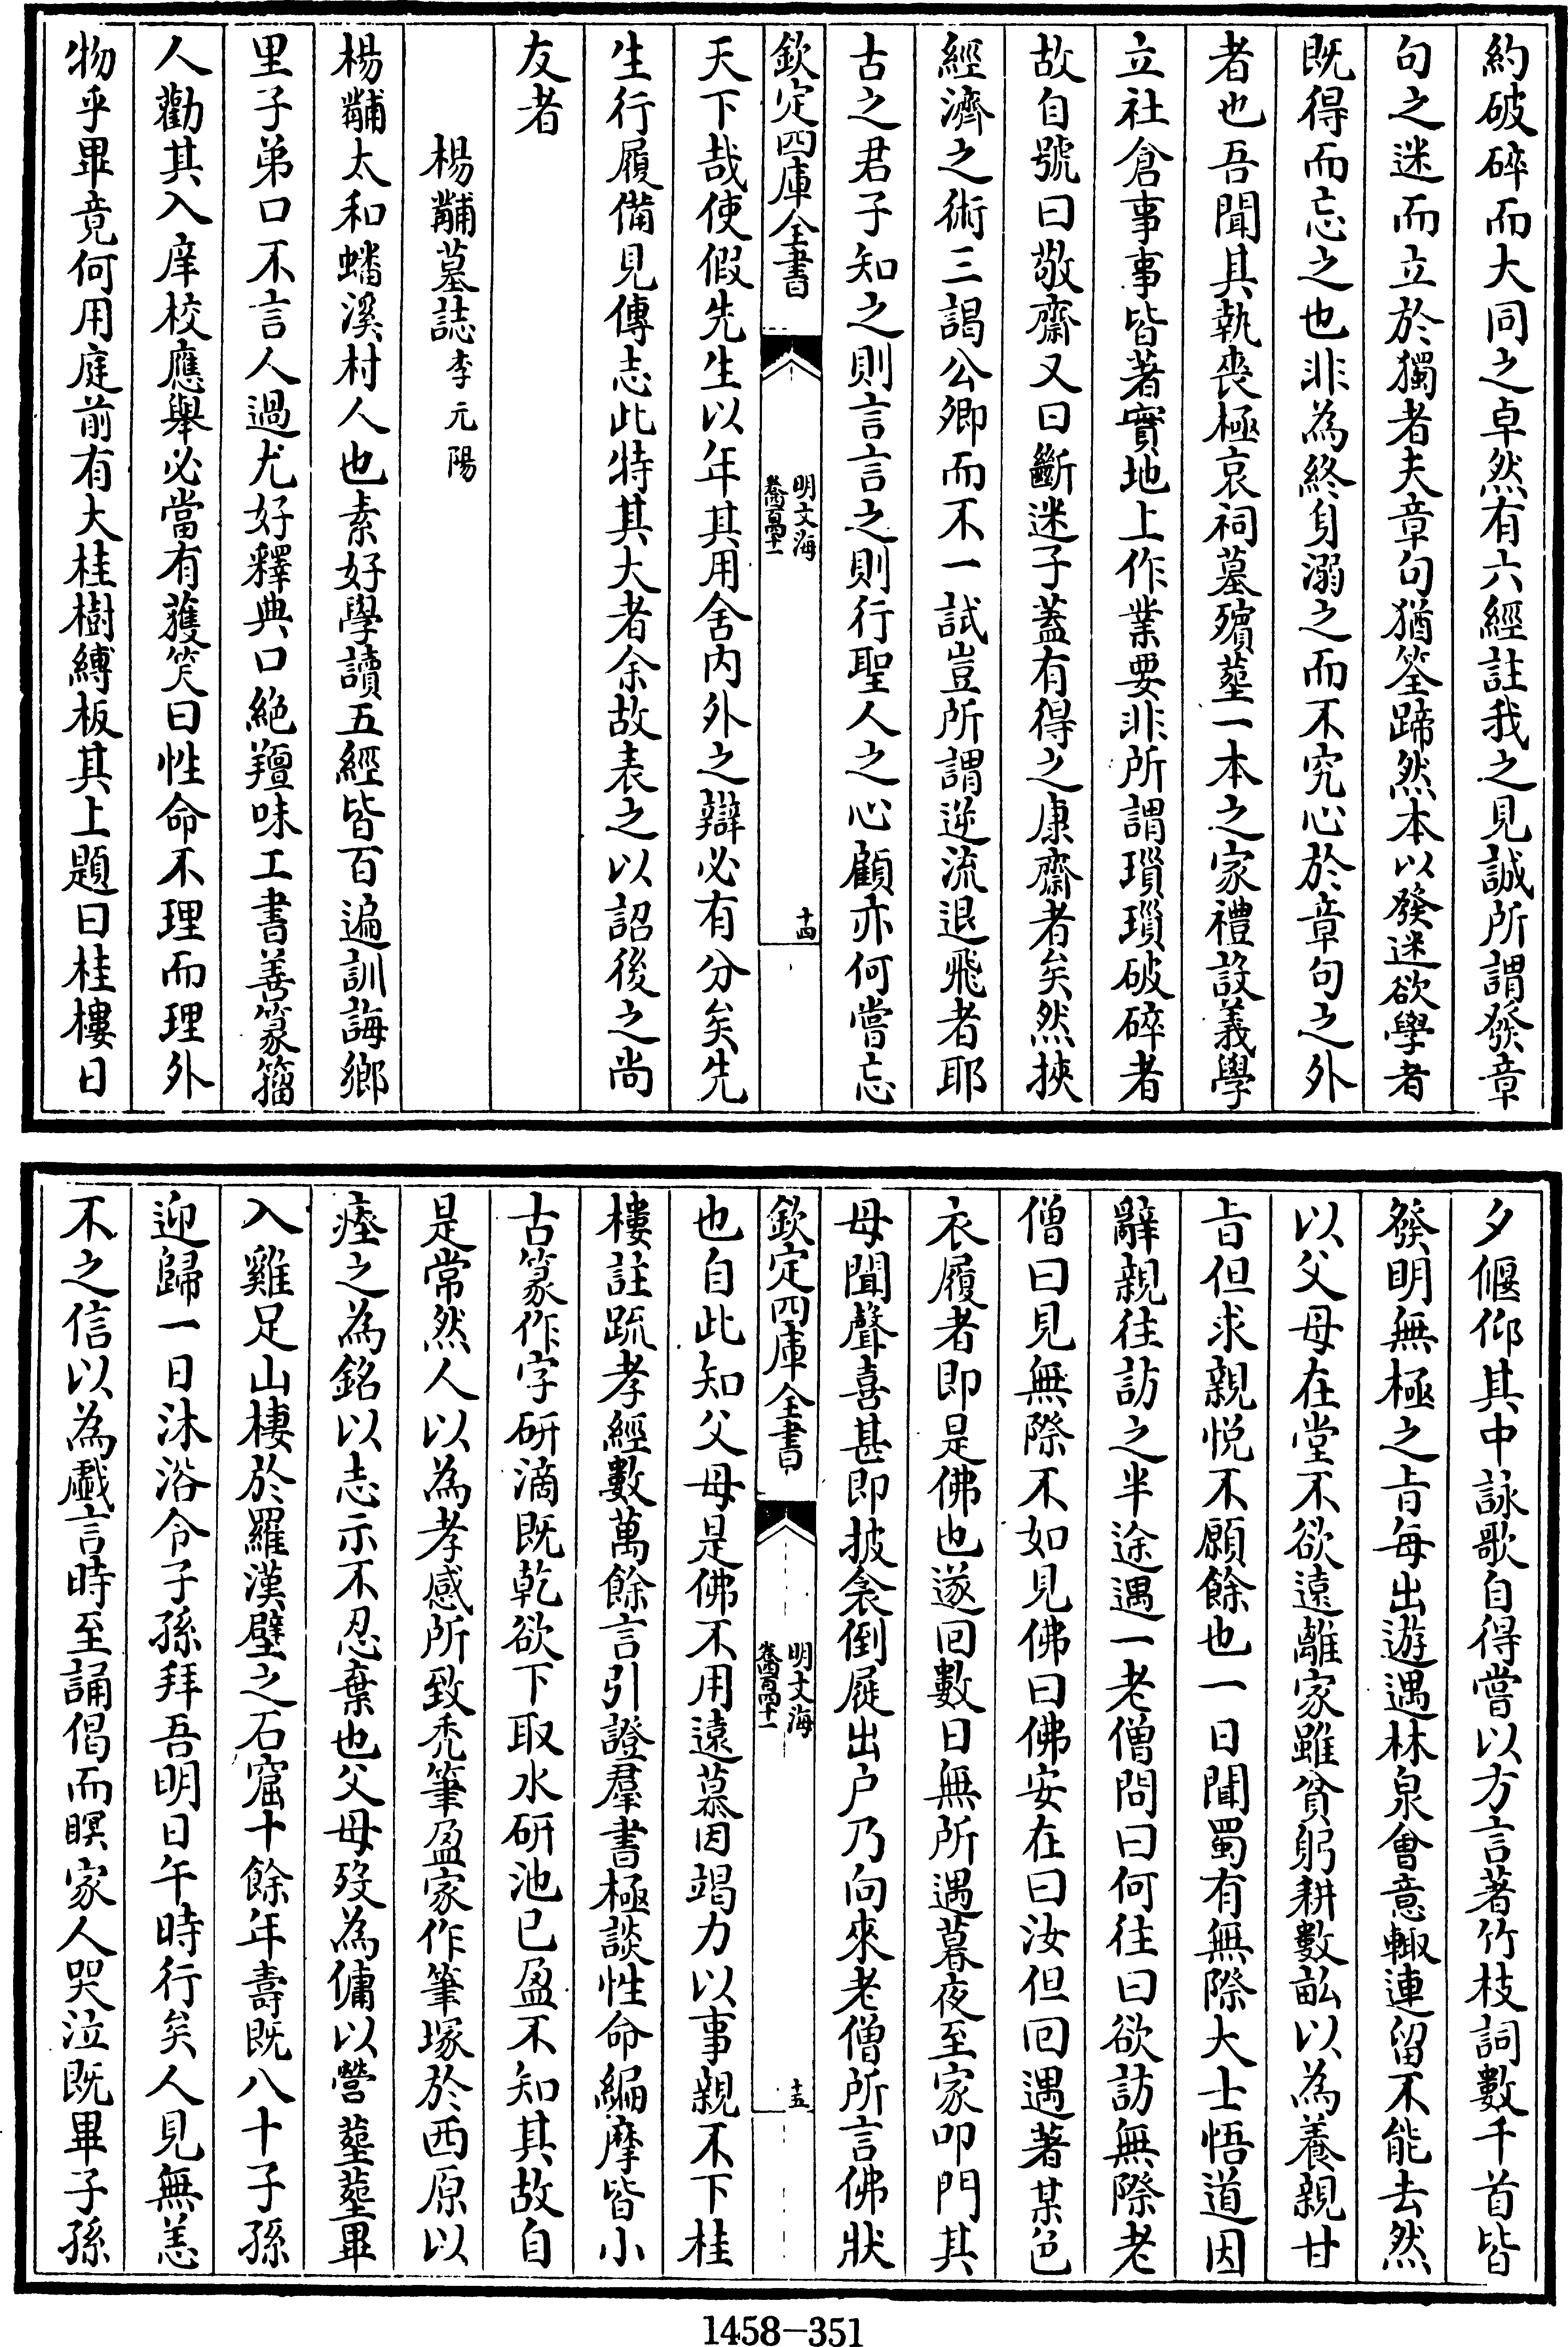 約破碎而大同之卓然有六經註我之見誠所謂發章
句之迷而立於獨者夫章句猶筌蹄然本以發迷欲學者
既得而忘之也非為終身溺之而不究心於章句之外
者也吾聞其執喪極哀祠墓殯塟一本之家禮設義學
立社倉事事皆著實地上作業要非所謂瑣瑣破碎者
故自號曰敬齋又曰斷迷子蓋有得之康齋者矣然挾
經濟之術三謁公卿而不一試豈所謂逆流退飛者耶
古之君子知之則言言之則行聖人之心顧亦何嘗忘
欽定四庫全書
明文海
卷四百四十一
十四
天下哉使假先生以年其用舍内外之辯必有分矣先
生行履備見傳志此特其大者余故表之以詔後之尚
友者
楊黼墓誌李元陽
楊黼太和蟠溪村人也素好學讀五經皆百遍訓誨鄉
里子弟口不言人過尤好釋典口絶羶味工書善篆籀
人勸其入庠校應舉必當有獲笑曰性命不理而理外
物乎畢竟何用庭前有大桂樹縛板其上題曰桂樓日
夕偃仰其中詠歌自得嘗以方言著竹枝詞數千首皆
發明無極之㫖每出遊遇林泉會意輙連留不能去然
以父母在堂不欲遠離家雖貧躬耕數畝以為養親甘
㫖但求親悦不願餘也一日聞蜀有無際大士悟道因
辭親往訪之半途遇一老僧問曰何往曰欲訪無際老
僧曰見無際不如見佛曰佛安在曰汝但回遇著某色
衣履者即是佛也遂回數日無所遇暮夜至家叩門其
母聞聲喜甚即披衾倒屣出户乃向來老僧所言佛狀
欽定四庫全書
明文海
卷四百四十一
十五
也自此知父母是佛不用遠慕因竭力以事親不下桂
樓註疏孝經數萬餘言引證羣書極談性命編摩皆小
古篆作字研滴既乾欲下取水研池已盈不知其故自
是常然人以為孝感所致秃筆盈家作筆塚於西原以
瘞之為銘以志示不忍棄也父母歿為傭以營塟塟畢
入雞足山棲於羅漢壁之石窟十餘年壽既八十子孫
迎歸一日沐浴令子孫拜吾明日午時行矣人見無恙
不之信以為戲言時至誦偈而瞑家人哭泣既畢子孫
1458-351